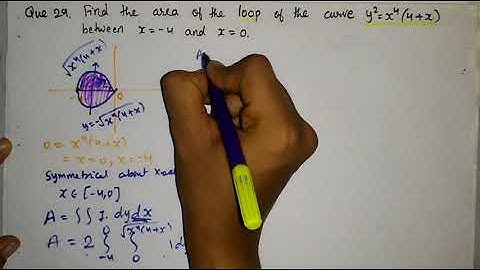 Que 29. Find the area of the loop of the curve y²=x⁴(4+x)
between x=-4 and x=0.
√x⁴(4+x)
0
y=-√x⁴(4+x)
0 = x⁴(4+x)
= x=0, x=-4
Symmetrical about x-axis
x∈[-4,0]
A = ∫∫ 1. dy dx
A = 2 ∫₋₄⁰ ∫₀^√x⁴(4+x) 1 d
A